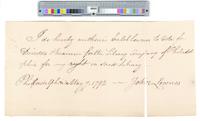 I do hereby authorise Caleb Lownes to Vote for
Directors & Treasurer for the Library Company of Philadel
phia for my right in said Library
Philadelphia May 7. 1792 — John Lownes